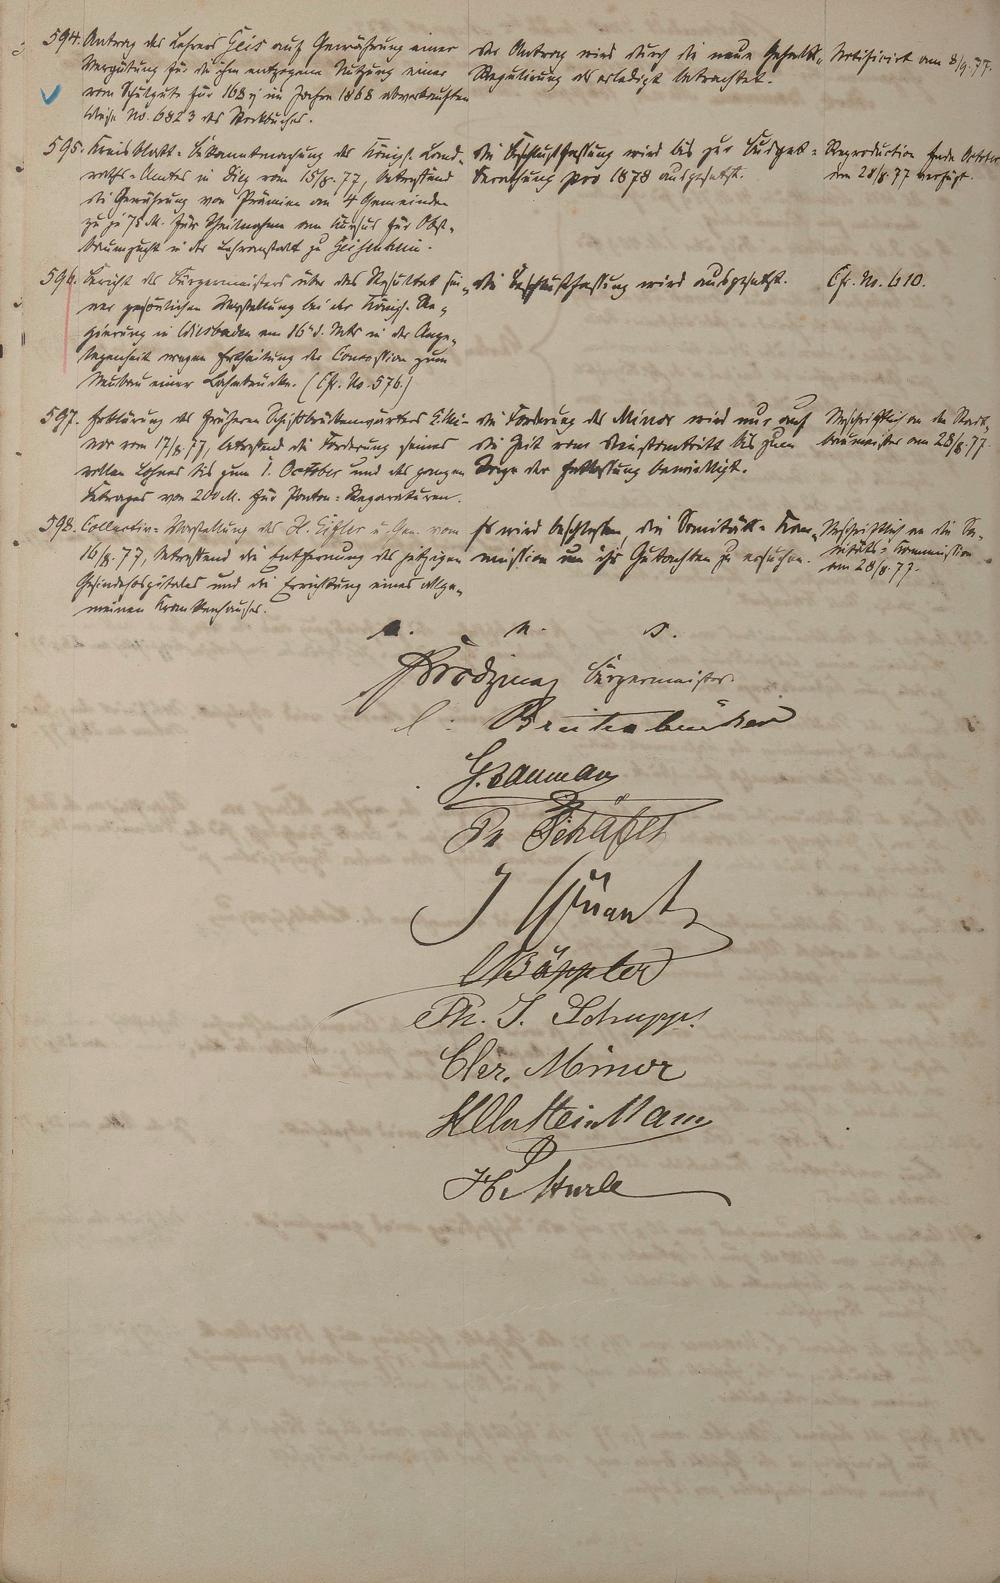 594. Antrag des Lehrers Geis auf Gewährung einer
Vergütung für die ihm entzogene Nutzung einer
vom Schulgute für 168 im Jahre 1868 abverkauften
Wiese No. 6823 des Stockbuches.
der Antrag wird durch die neue Gehalts-
Regulirung als erledigt betrachtet.
Notificirt am 8/9.77.
595. Kreisblatt-Bekanntmachung des Königl. Land-
raths-Amtes in Diez vom 15/8.77, betreffend
die Gewährung von Prämien an 4 Gemeinden
zu je 75 M. für Theilnahme am Kursus für Obst-
baumzucht in der Lehranstalt zu Geisenheim.
die Beschlußfassung wird bis zur Budget-
Berathung pro 1878 ausgesetzt.
Reproduction Ende October
den 28/8.77 verfügt.
596. Bericht des Bürgermeisters über das Resultat sei-
ner persönlichen Vorstellung bei der Königl. Re-
gierung in Wiesbaden am 16. d. Mts in der Ange-
legenheit wegen Ertheilung der Concession zum
Neubau einer Lahnbrücke. (Cfr. No. 576.)
die Beschlußfassung wird ausgesetzt.
Cfr. No. 610.
597. Erklärung des früheren Schiffbrückenwärters Mi-
nor vom 17/8.77, betreffend die Forderung seines
vollen Lohnes bis zum 1. October und des ganzen
Betrages von 200 M. für Ponton-Reparaturen.
die Forderung des Minor wird nur auf
die Zeit vom Dienstantritt bis zum
Tage der Entlassung bewilligt.
Urschriftlich an den Stadt-
baumeister am 28/8.77.
598. Collectiv-Vorstellung des H. u. Gen. vom
16/8.77, betreffend die Entfernung des jetzigen
Gesindehospitales und die Errichtung eines allge-
meinen Krankenhauses.
Es wird beschlossen, die Sanitäts-Kom-
mission um ihr Gutachten zu ersuchen.
Urschriftlich an die Sa-
nitäts-Commission
am 28/8.77.
Bürgermeister.
G. Bauman
Schäfer
J Quant
Käppler
Ph. J. Schupp.
Chr. Minor